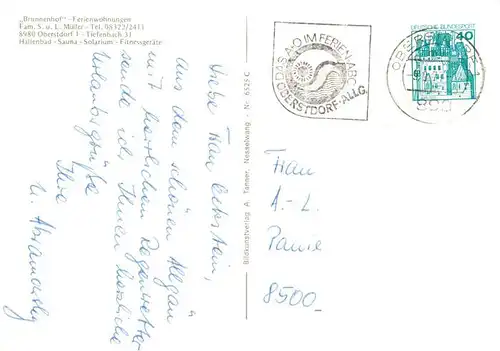 „Brunnenhof" -Ferienwohnungen
Fam. S. u. L. Müller - Tel. 08322/2411
8980 Oberstdorf 1 - Tiefenbach 31
Hallenbad - Sauna - Solarium - Fitnessgeräte
Liebe Frau
aus dem schönen Allgäu
mit herrlichem Regenwetter
sende ich Ihnen herzliche
Urlaubsgrüße
Ihre
Bildkunstverlag A. Tanner, Nesselwang - Nr. 6525 C
DAS A·O IM FERIEN-ABC
OBERSTDORF-ALLG.
OBERSTDORF 1
898
DEUTSCHE BUNDESPOST
40
Frau
A.-L.
8500